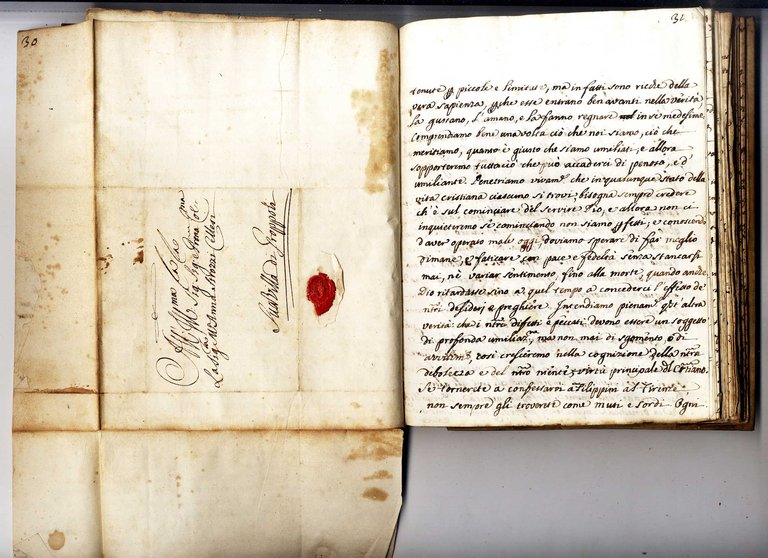 30
All' Ill.ma
Sua Villa di Groppoli
31.
tenute p piccole e limitate, ma in fatti sono ricche della
vera sapienza, pche esse entrano ben avanti nella verità
la gustano, l'amano, e la fanno regnare in se medesime
Comprendiamo bene una volta ciò che noi siamo, ciò che
meritiamo, quanto è giusto che siamo umiliati, e allora
sopporteremo tutto ciò che può accaderci di penoso, e d'
umiliante. Penetriamo vivam.e che in qualunque stato della
vita cristiana ciascuno si trovi, bisogna sempre credere
ch'è sul cominciare del servire Dio, e allora non ci
inquieteremo se cominciando non siamo pfetti, e conoscendo
d'aver operato male oggi, doviamo sperare di far meglio
dimane, e faticare con pace e fedeltà senza stancarsi
mai, nè variar sentimento, fino alla morte, quando anche
Dio ritardasse sino a quel tempo a concederci l'effetto de'
ntri desiderj e preghiere. Intendiamo pienam.e qst'altra
verità: che i ntri difetti e peccati devono essere un soggetto
di profonda umiliaz.ne, ma non mai di sgomento o di
avvilim.o, così cresceremo nella cognizione della ntra
debolezza e del ntro niente, virtù principale del Cristiano.
Se tornerete a confessarvi a Filippini a Firenze
non sempre gli troverete come muti e sordi. Ogni